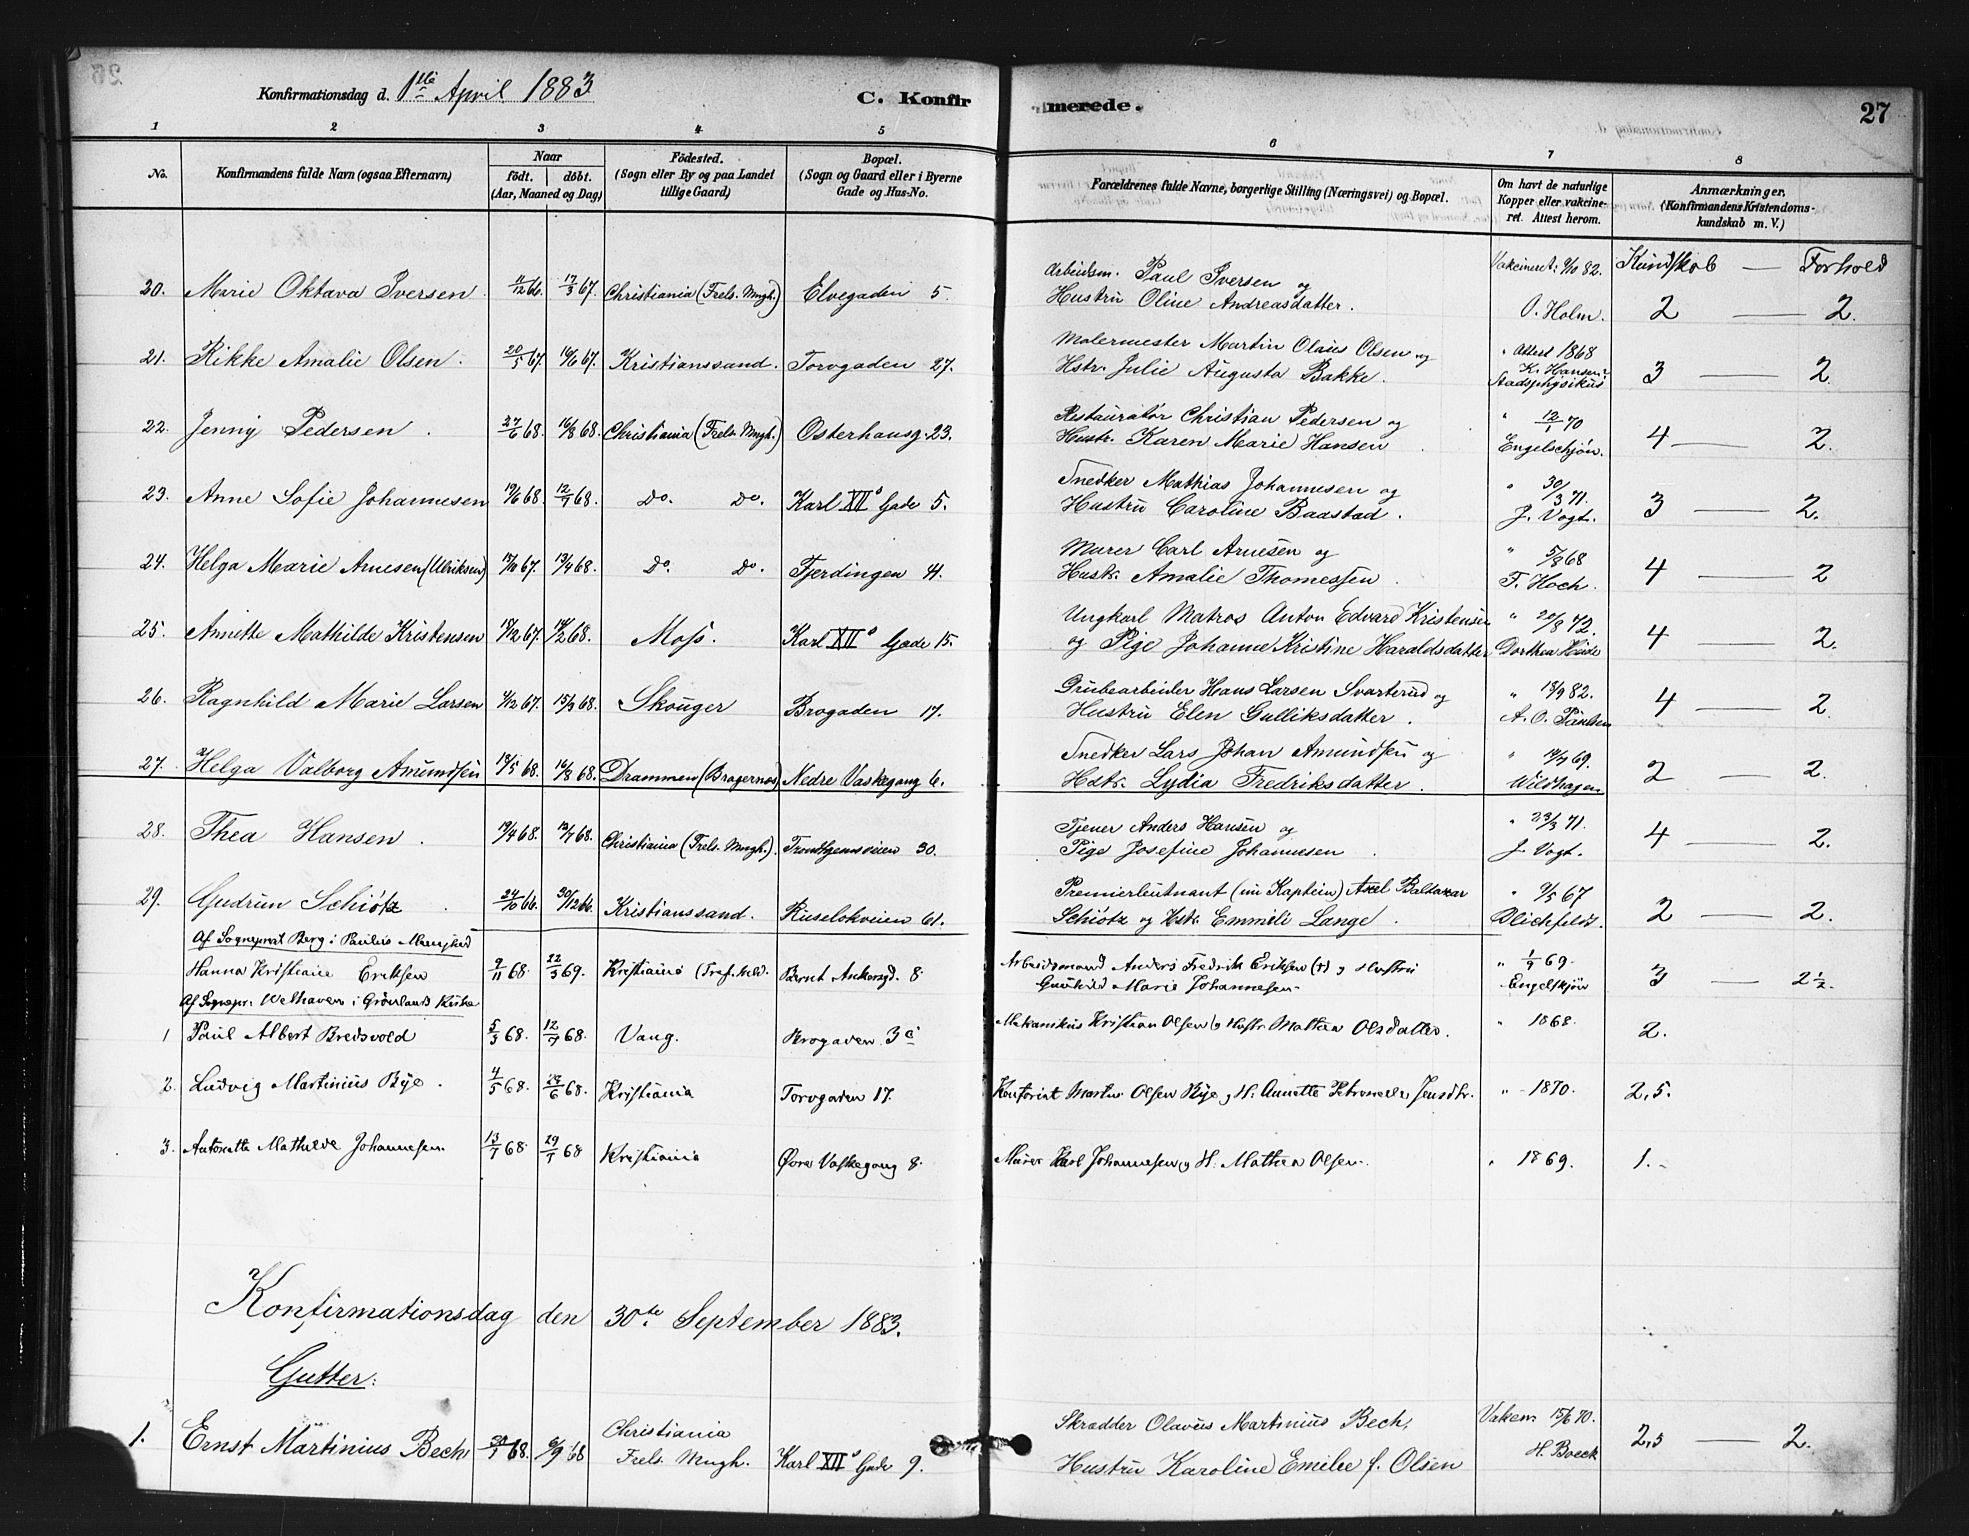 Konfirmationsdag d. 1ste April 1883. C. Konfirmerede. 27
1 2 3 4 5 6 7 8
No. Konfirmandens fulde Navn (ogsaa Efternavn) Naar födt. döbt. (Aar, Maaned og Dag) Födested. (Sogn eller By og paa Landet tillige Gaard) Bopæl. (Sogn og Gaard eller i Byerne Gade og Hus-No. Forældrenes fulde Navne, borgerlige Stilling (Næringsvei) og Bopæl. Om havt de naturlige Kopper eller vakcineret. Attest herom. Anmærkninger. (Konfirmandens Kristendomskundskab m. V.)
Kundskab — Forhold
20. Marie Oktava Iversen 11/12 66. 17/3 67. Christiania (Frels. Mngh.) Elvegaden 5. Arbeidsm. Paul Iversen og
Hustru Oline Andreasdatter. Vakcineret: 9/10 82. O. Holm. 2 — 2.
21. Rikke Amalie Olsen. 20/5 67. 16/6 67. Kristianssand. Torvgaden 27. Malermester Martin Olaus Olsen og
Hstr. Julie Augusta Bakke. " Attest 1868 K. Hansen Stadsphysikus 3 — 2.
22. Jenny Pedersen. 27/6 68. 16/8 68. Christiania (Frels. Mngh.) Osterhausg. 23. Restauratør Christian Pedersen og
Hustr. Karen Marie Hansen " 12/1 70 Engelschjøn. 4 — 2.
23. Anne Sofie Johannesen 19/6 68. 12/9 68. Do. Do. Karl XII's Gade 5. Snedker Mathias Johannesen og
Hustru Caroline Baastad. " 30/3 71. J. Vogt. 3 — 2.
24. Helga Marie Arnesen (Ulriksen) 17/10 67. 13/4 68. Do. Do. Fjerdingen 4. Murer Carl Arnesen og
Hustr. Amalie Thomessen. " 5/8 68 F. Hoch. 4 — 2
25. Annette Mathilde Kristensen 18/12 67. 14/2 68. Moss. Karl XII's Gade 15. Ungkarl Matros Anton Edvard Kristensen
og Pige Johanne Kristine Haraldsdatter " 20/8 72. Dorthea Heide 4 — 2.
26. Ragnhild Marie Larsen 1/12 67. 15/3 68. Skouger Brogaden 17. Grubearbeider Hans Larsen Svarterud og
Hustru Elen Gulliksdatter. " 13/9 82. A. O. Paulsen 4 — 2.
27. Helga Valborg Amundsen 19/5 68. 16/8 68. Drammen (Bragernes) Nedre Vaskegang 6. Snedker Lars Johan Amundsen og
Hstr. Lydia Fredriksdatter. " 14/7 69. Wildhagen 2 — 2.
28. Thea Hansen. 19/4 68. 12/7 68. Christiania (Frels. Mngh.). Trondhjemsveien 30. Tjener Anders Hansen og
Pige Josefine Johannesen. " 23/3 71. J. Vogt. 4 — 2.
29. Gudrun Schiøtz. 24/10 66. 30/12 66. Kristianssand. Ruselskveien 61. Premierleutnant (nu Kaptein) Axel Baltazar
Schiøtz og Hstr. Emmeli Lange. " 9/5 67 2 — 2.
Af Sogneprest Berg i Paulus Menighed
Hanna Kristiane Eriksen 9/11 68. 22/3 69. Kristiania (Tref. Mld. Bernt Ankersgd. 8 Arbeidsmand Anders Fredrik Eriksen (†) og Hustru
Gunhild Marie Johannesen. " 1/9 69. Engelskjøn 3 — 2½.
Af Sognepr. Welhaven i Grønlands Kirke
1 Paul Albert Bredsvold 5/3 68. 12/7 68. Vang. Brogaden 3c Mekanikus Kristian Olsen og Hustr. Mathea Olsdatter. " 1868. 2.
2. Ludvig Martinius Bye. 4/5 68. 29/6 68. Kristiania Torvgaden 17. Kontorist Martin Olsen Bye og H. Annette Petronelle Jensdtr. " 1870. 2,5.
3. Antonette Mathilde Johannesen. 13/7 68. 29/7 68 Kristiania Øvre Vaskegang 8. Murer Karl Johannesen og H. Mathea Olsen. " 1869. 1.
Konfirmationsdag den 30te September 1883.
Gutter:
1. Ernst Martinius Bech 30/7 68. 6/9 68 Christiania Frels. Mngh. Karl XII's Gade 9. Skrædder Olavus Martinius Bech,
Hustru Karoline Emilie f. Olsen Vakcin. 15/6 70. H. Boeck 2,5 — 2.